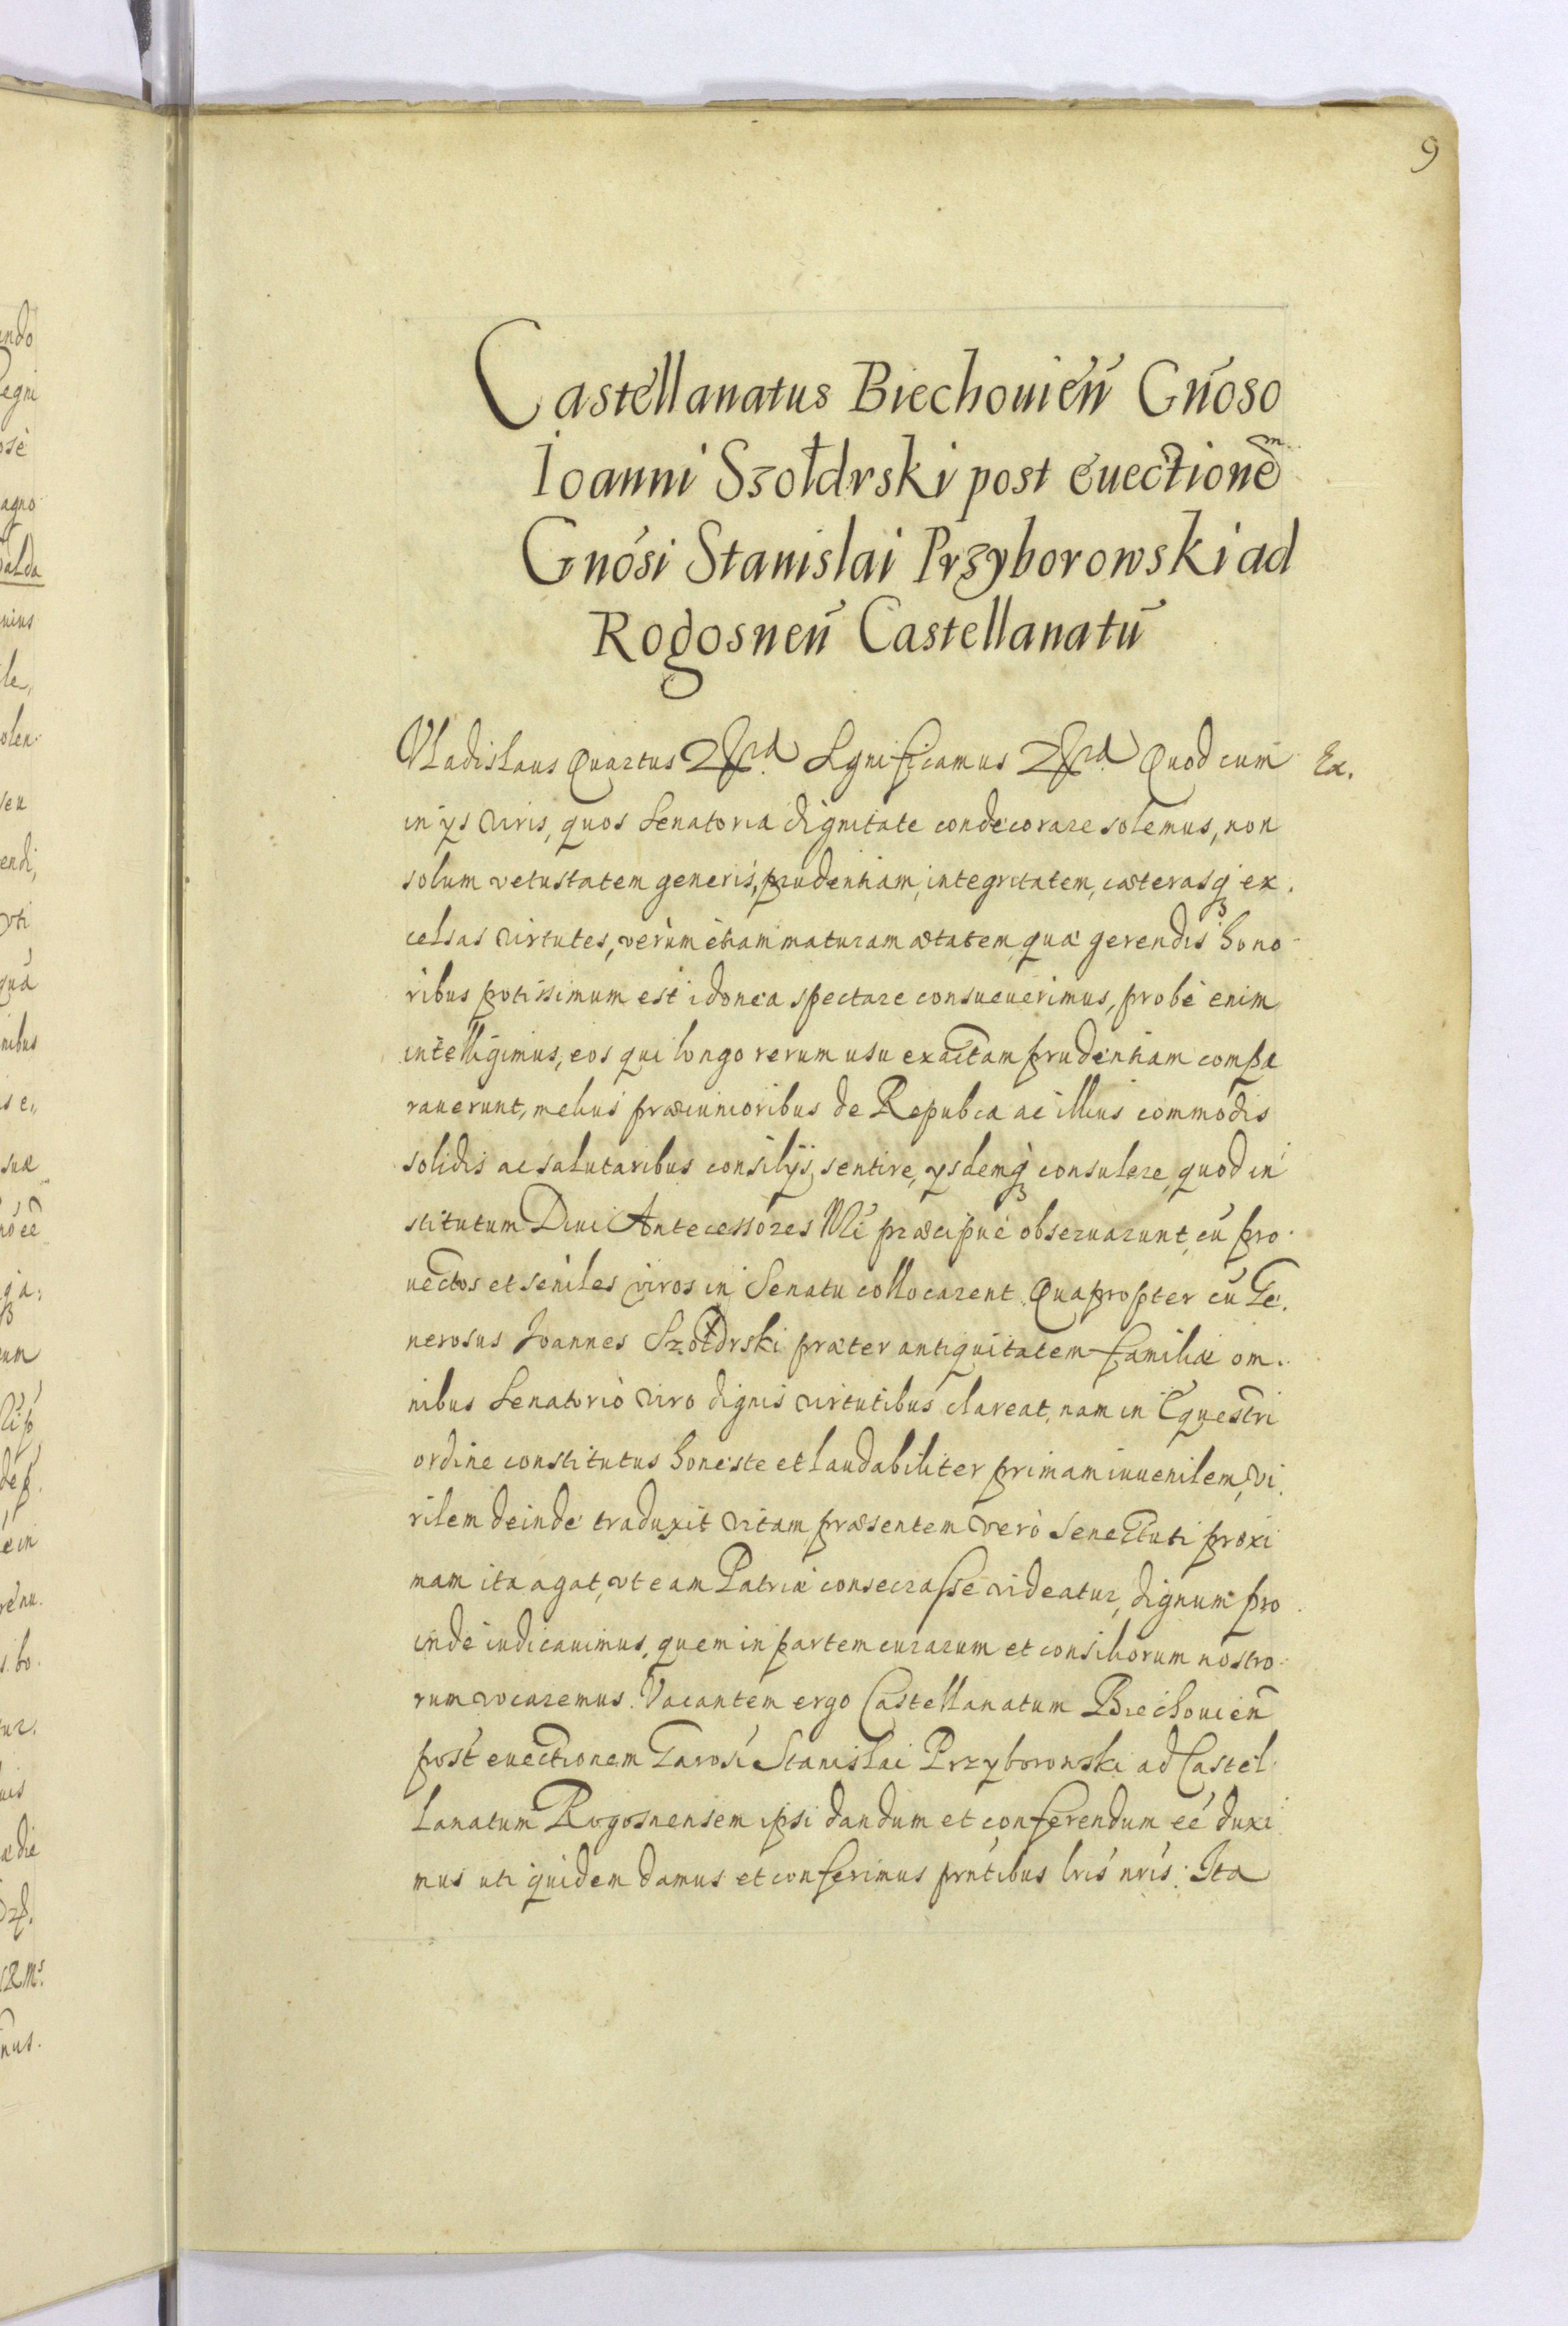 9
Castellanatus Biechouien̄ Gn̄oso
Ioanni Szołdrski post euectionē
Gnōsi Stanislai Przyborowski ad
Rogosnen̄ Castellanatū
Vladislaus Quartus Significamus Quod cum Ex.
in ys viris, quos Senatoria dignitate condecorare solemus, non
solum vetustatem generis, prudentiam, integritatem, cæterasq ex
celsas virtutes, verùm etiam maturam ætatem quæ gerendis hono
ribus potissimum est idonea spectare consueuerimus, probè enim
intelligimus, eos qui longo rerum usu exactam prudentiam compa
rauerunt, melius præ iunioribus de Repubca ac illius commodis
solidis ac salutaribus consilys sentire, ysdemq consulere, quod in
stitutum Diui Antecessores Nri præcipuè obseruarunt, cū pro
uectos et seniles viros in Senatu collocarent. Quapropter cū Ge
nerosus Joannes Szołdrski præter antiquitatem familiæ om
nibus Senatorio viro dignis virtutibus clareat, nam in Equestri
ordine constitutus honeste et laudabiliter primam iuuenilem, vi
rilem deinde traduxit vitam præsentem verò senectuti proxi
mam ita agat, vt eam Patriæ consecrasse videatur, dignum pro
inde iudicauimus, quem in partem curarum et consiliorum nostro
rum vocaremus. Vacantem ergo Castellanatum Biechouien̄
post euectionem Gnrosi Stanislai Przyborowski ad Castel
lanatum Rogosnensem ipsi dandum et conferendum eē duxi
mus uti quidem damus et conferimus prntibus lris nris. Ita